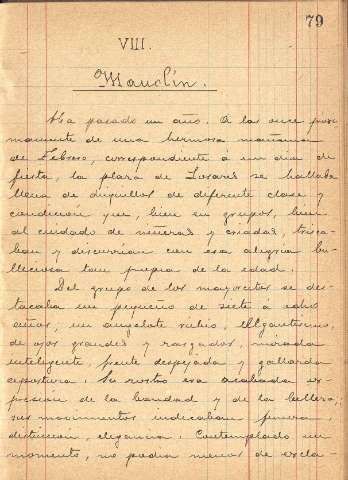 79
VIII.
Mauclín.
Ha pasado un año. A la once próxi-
mamente de una hermosa mañana
de Febrero, correspondiente á un día de
fiesta, la plaza de Linares se hallaba
llena de chiquillos de diferente clase y
condición que, bien en grupos, bien
al cuidado de niñeras y criadas, trisca-
ban y discurrían con esa alegría bu-
lliciosa tan propia de la edad.
Del grupo de los mayorcitos se des-
tacaba un pequeño de siete á ocho
años; un angelote rubio, elegantísimo,
de ojos grandes y rasgados, mirada
inteligente, frente despejada y gallarda
apostura. Su rostro era acabada ex-
presión de la bondad y de la belleza;
sus movimientos indicaban finura
distinción, elegancia. Contemplado un
momento, no podía menos de excla-